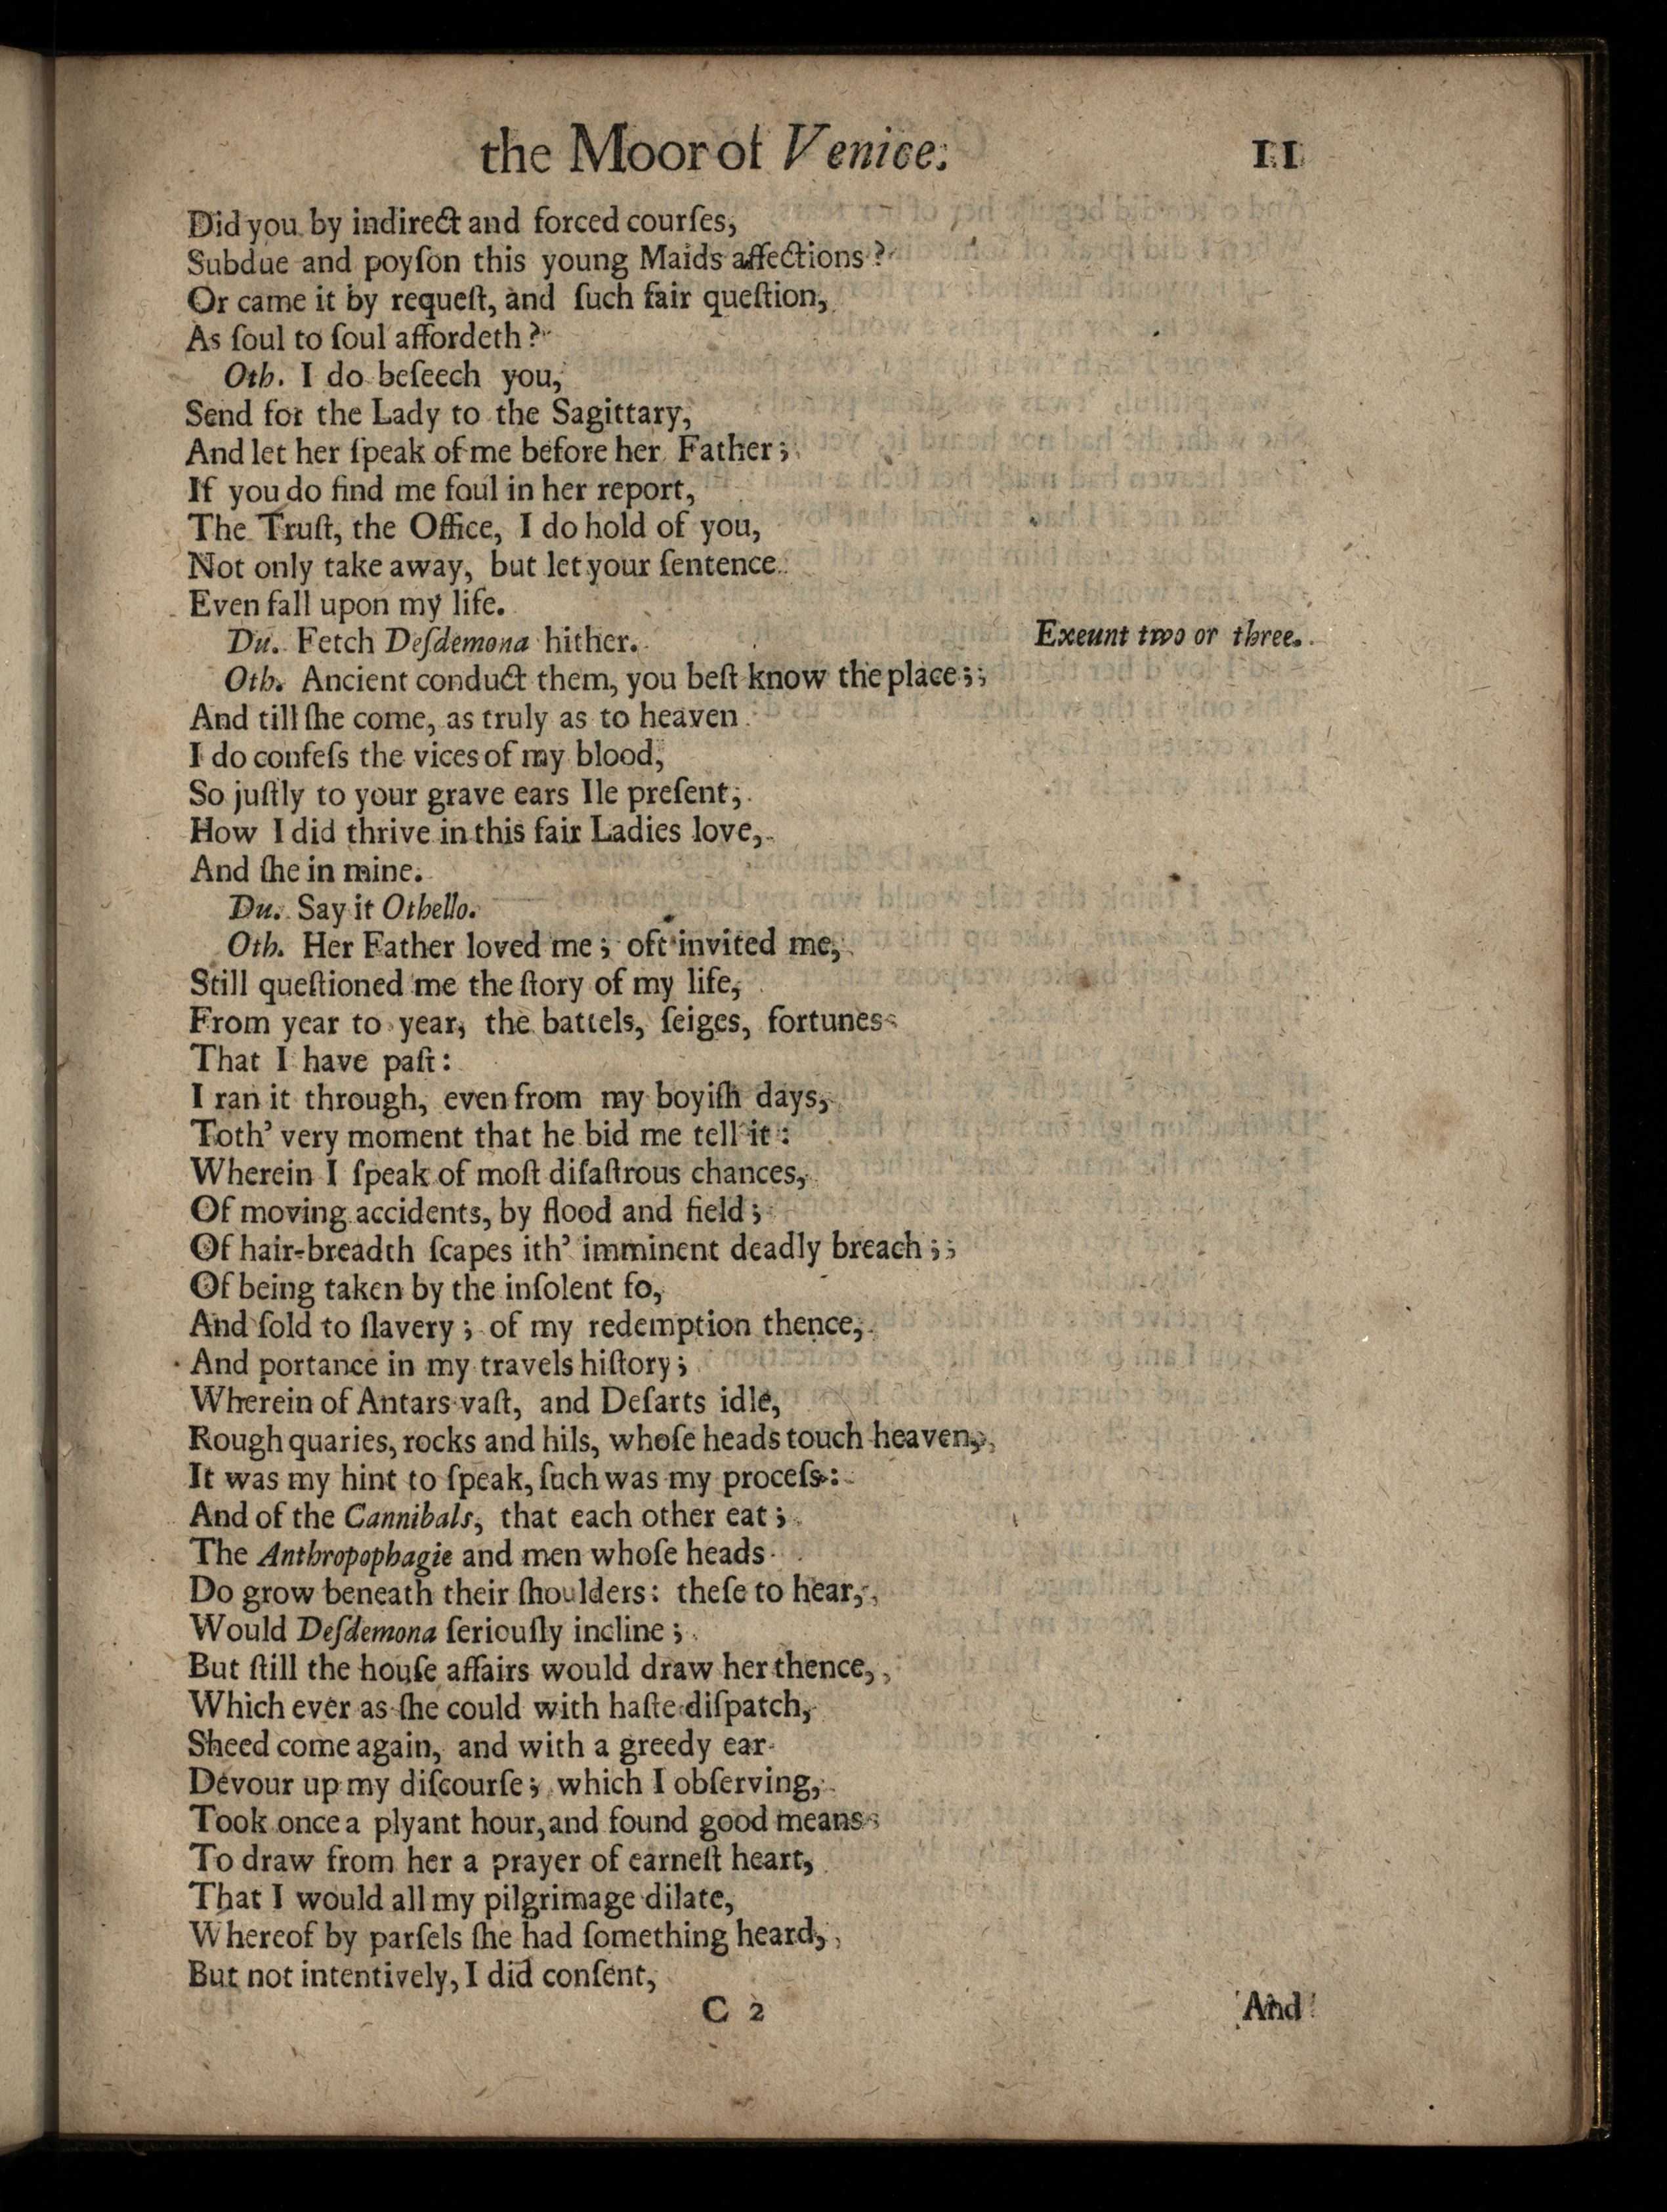 the Moor of Venice. 11
Did you by indirect and forced courſes,
Subdue and poyſon this young Maids affections?
Or came it by requeſt, and ſuch fair queſtion,
As ſoul to ſoul affordeth?
Oth. I do beſeech you,
Send for the Lady to the Sagittary,
And let her ſpeak of me before her Father;
If you do find me foul in her report,
The Truſt, the Office, I do hold of you,
Not only take away, but let your ſentence
Even fall upon my life.
Du. Fetch Deſdemona hither. Exeunt two or three.
Oth. Ancient conduct them, you beſt know the place;
And till ſhe come, as truly as to heaven
I do confeſs the vices of my blood,
So juſtly to your grave ears Ile preſent,
How I did thrive in this fair Ladies love,
And ſhe in mine.
Du. Say it Othello.
Oth. Her Father loved me; oft invited me,
Still queſtioned me the ſtory of my life,
From year to year, the battels, ſeiges, fortunes
That I have paſt:
I ran it through, even from my boyiſh days,
Toth' very moment that he bid me tell it:
Wherein I ſpeak of moſt diſaſtrous chances,
Of moving accidents, by flood and field;
Of hair-breadth ſcapes ith' imminent deadly breach;
Of being taken by the inſolent fo,
And ſold to ſlavery; of my redemption thence,
And portance in my travels hiſtory;
Wherein of Antars vaſt, and Deſarts idle,
Rough quaries, rocks and hils, whoſe heads touch heaven,
It was my hint to ſpeak, ſuch was my proceſs:
And of the Cannibals, that each other eat;
The Anthropophagie and men whoſe heads
Do grow beneath their ſhoulders: theſe to hear,
Would Deſdemona ſeriouſly incline;
But ſtill the houſe affairs would draw her thence,
Which ever as ſhe could with haſte diſpatch,
Sheed come again, and with a greedy ear
Devour up my diſcourſe; which I obſerving,
Took once a plyant hour, and found good means
To draw from her a prayer of earneſt heart,
That I would all my pilgrimage dilate,
Whereof by parſels ſhe had ſomething heard,
But not intentively, I did conſent,
C 2 And